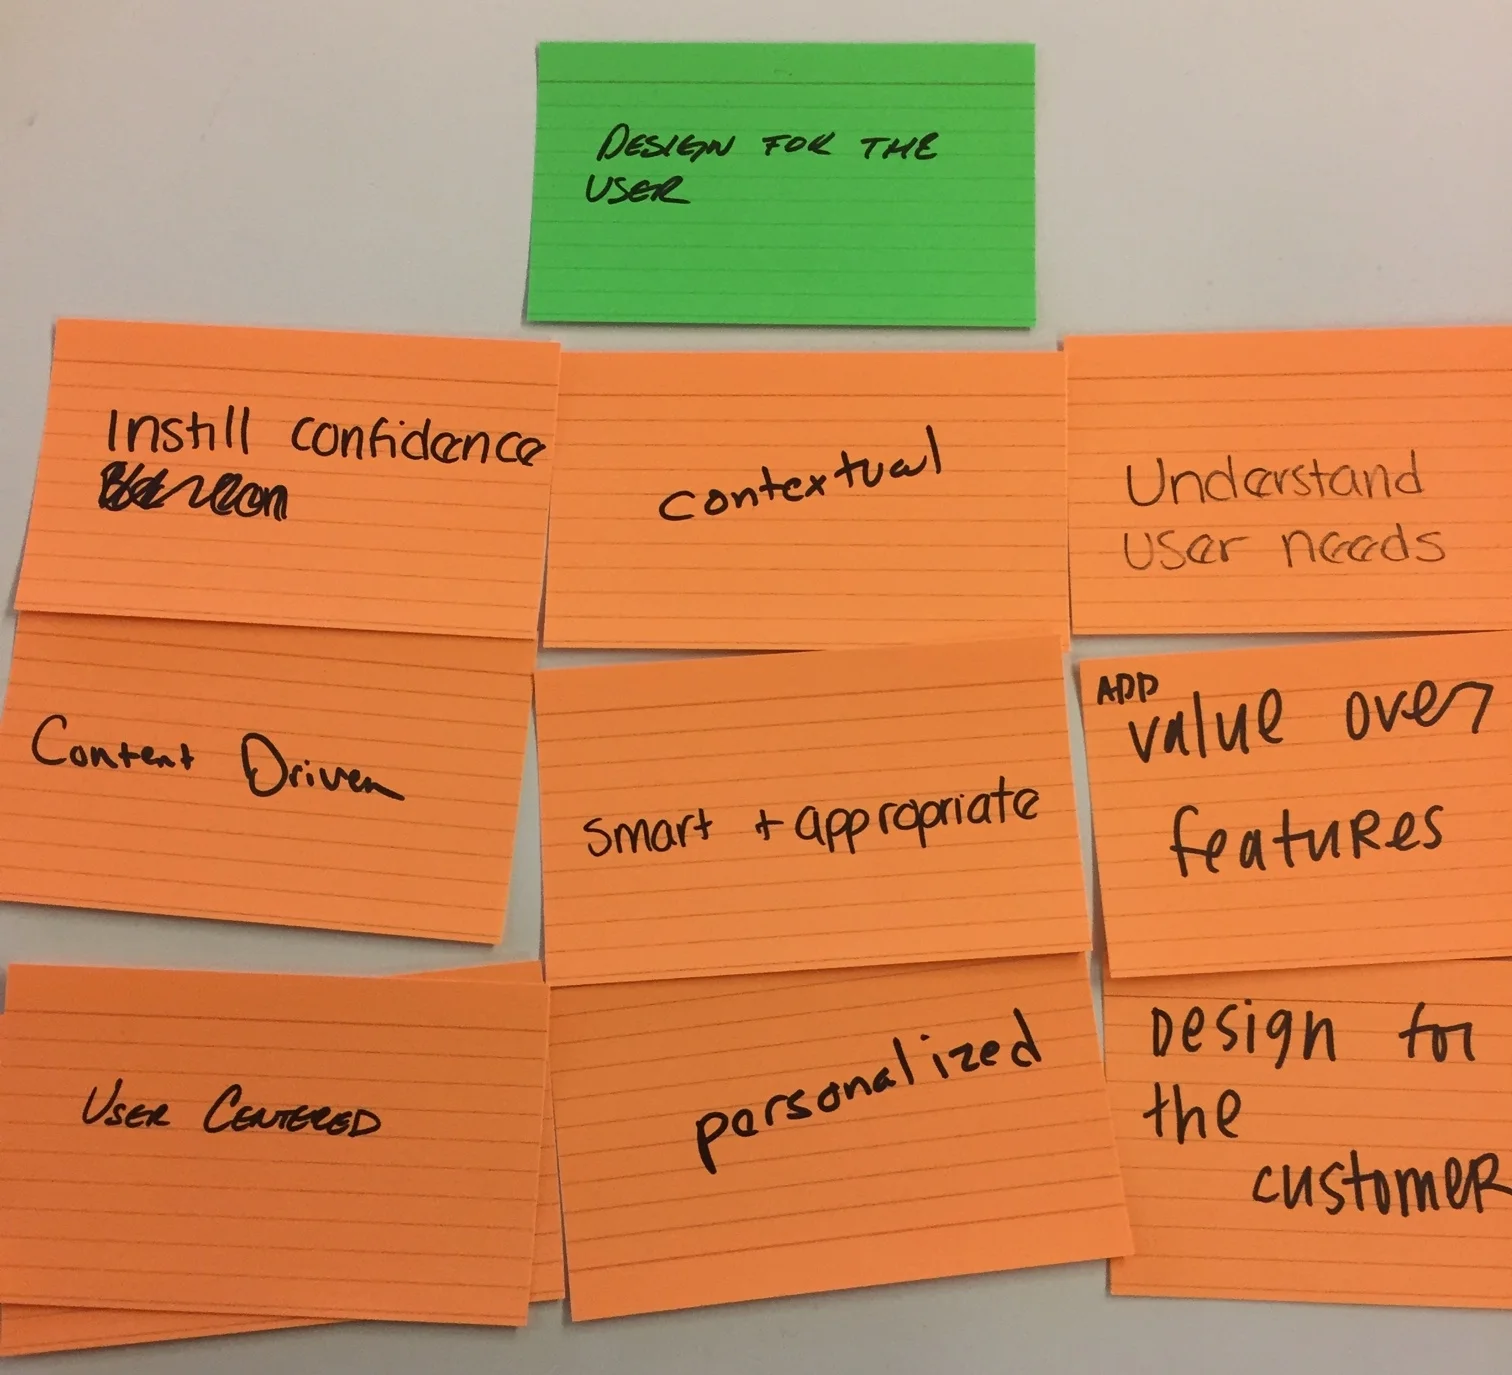 DESIGN FOR THE
USER
Instill confidence
contextual
Understand
user needs
Content Driven
smart + appropriate
ADD
value over
features
USER CENTERED
personalized
Design for
the
customer